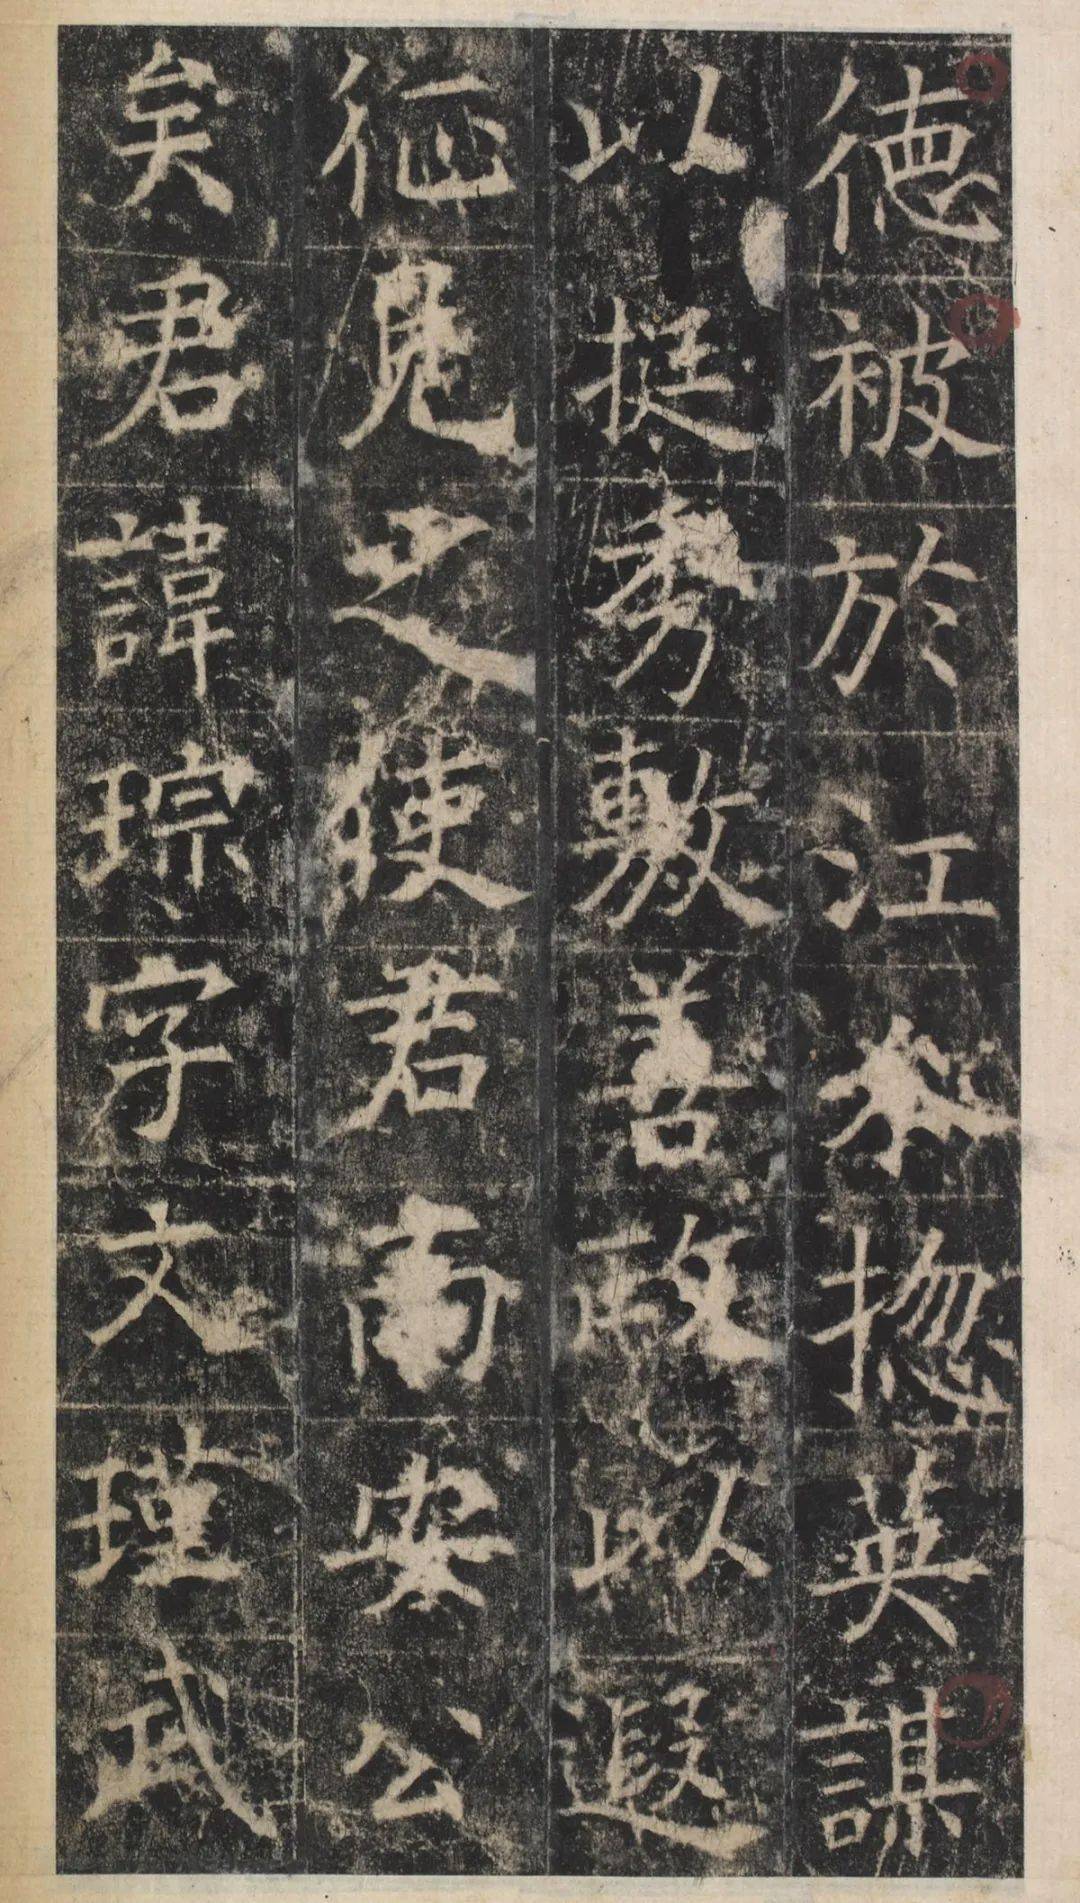 德被於江揔英謀
以挺秀敷善政以遐
征見之使君南安公
矣君諱琮字文瑾武